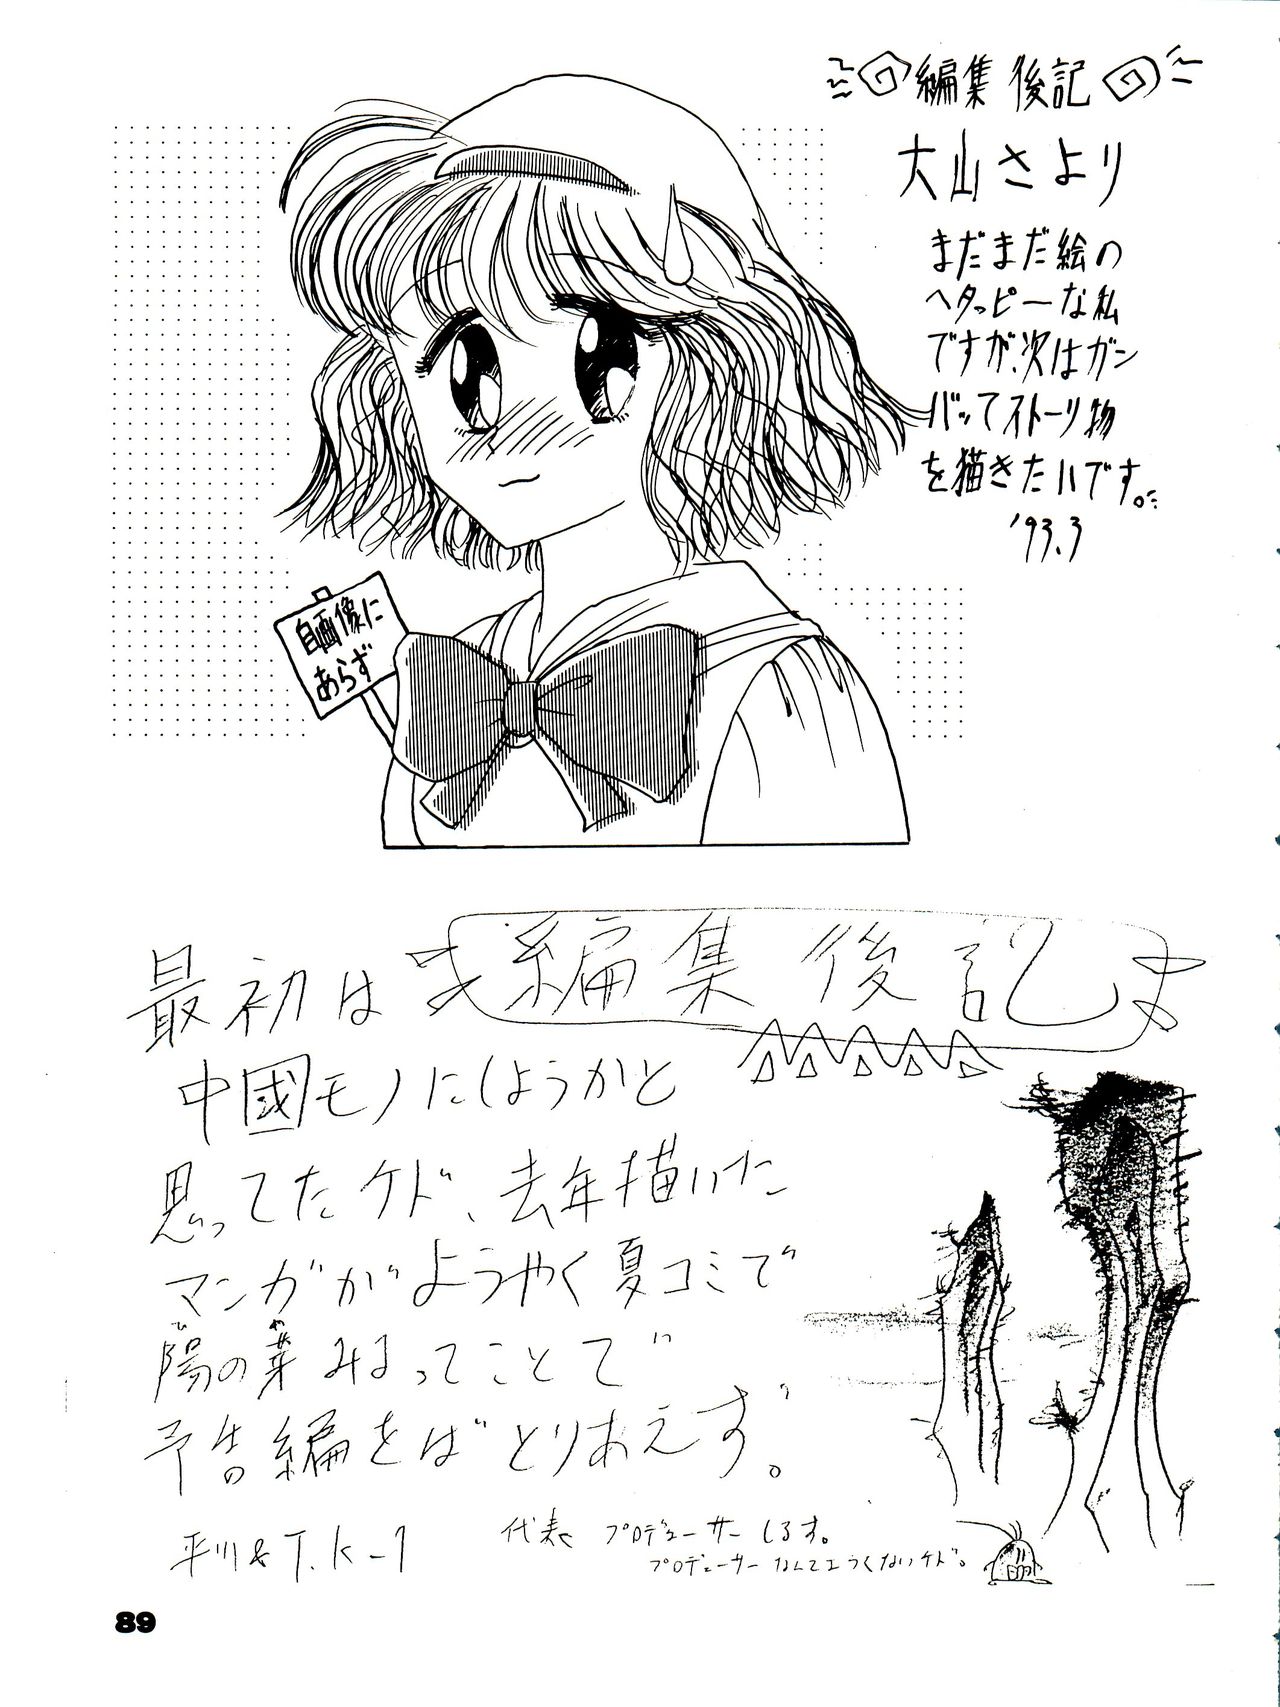 編集後記
大山さより
まだまだ絵の
ヘタッピーな私
ですが、次はガン
バッてストーリ物
を描きたいです。
'93.3
自画像に
あらず
編集後記
最初は
中國モノにしようかと
思ってたケド、去年描いた
マンガがようやく夏コミで
陽の芽みるってことで
予告編をばとりあえず。
平川&T.K-1
代表 プロデューサーしるす。
プロデューサーなんてエラくないケド。
89